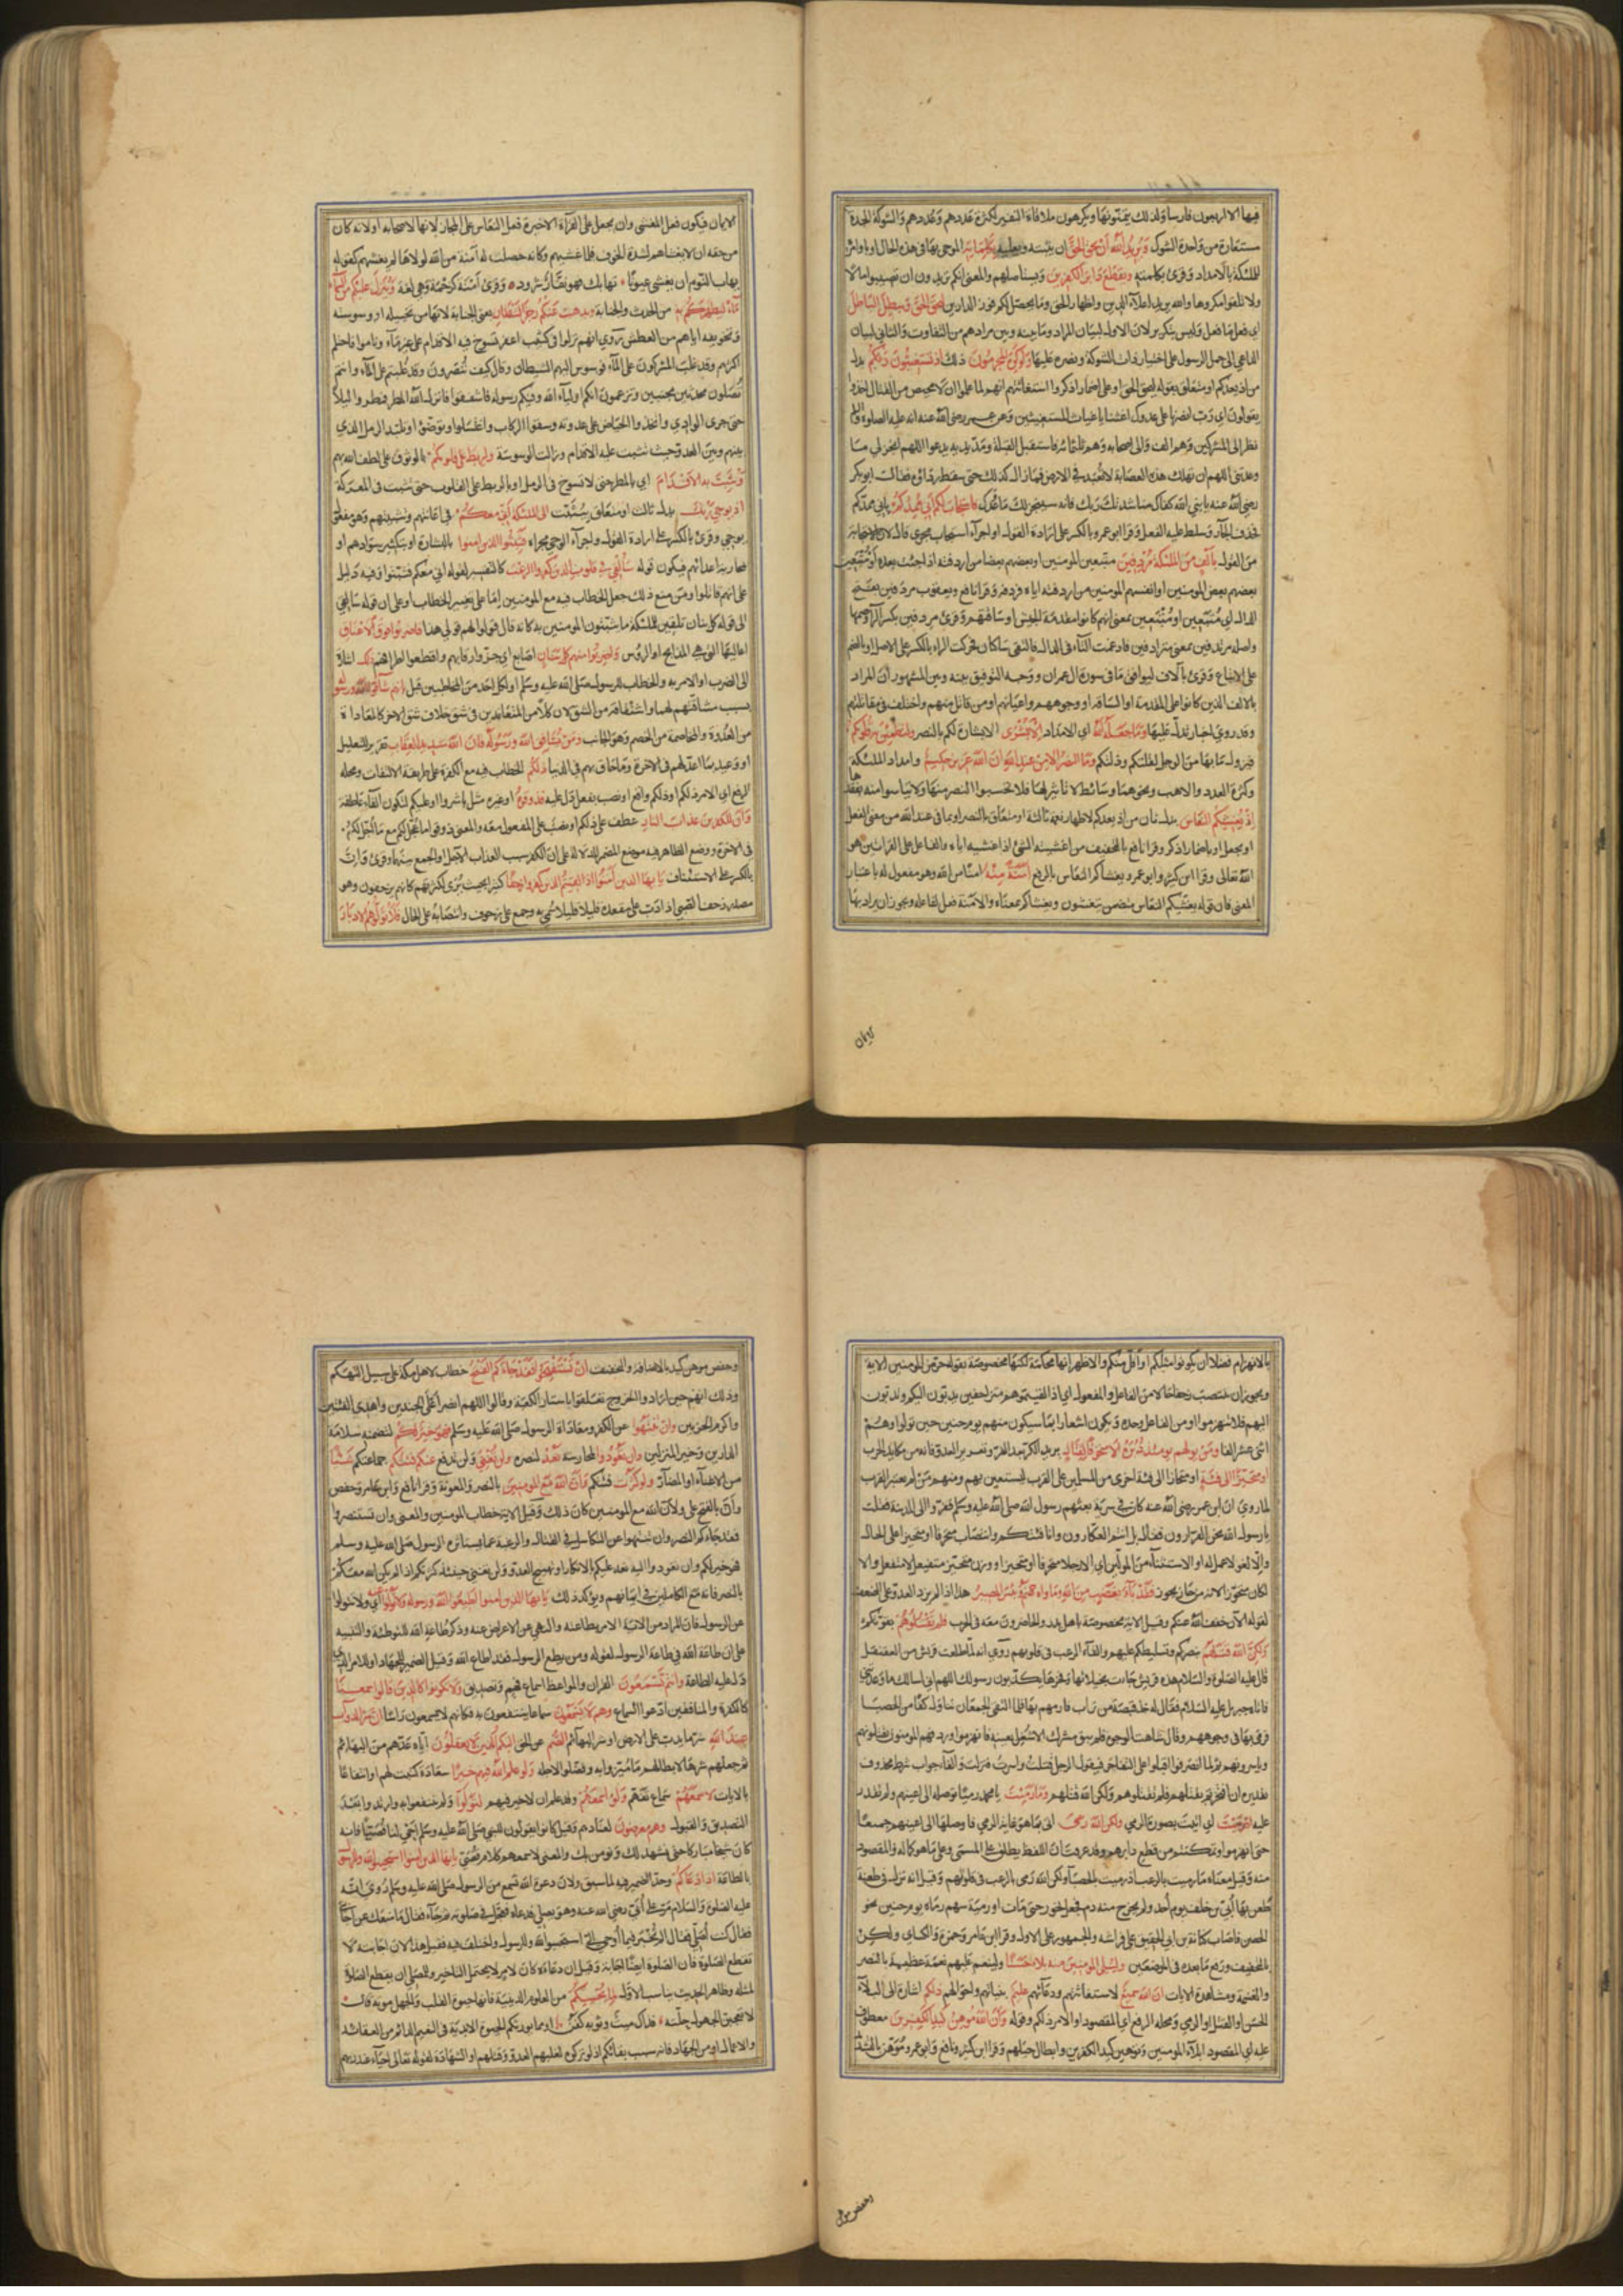 فيها الا اربعون فارسا ولذلك يتمنونها ويكرهون ملاقاة النفير لكثرة عددهم وعددهم والشوكة الحدة
مستعارة من واحدة الشوك وَيُرِيدُ اللّهُ أَنْ يُحِقَّ الحَقَّ ان يثبته ويعليه بِكَلِمَاتِهِ الموحى بها في هذه الحال او باوامره
للملئكة بالامداد وقرئ بكلمته ويقطع دابر الكفرين ويستأصلهم والمعنى انكم تريدون ان تصيبوا مالا
ولا تلقوا مكروها والله يريد اعلاء الدين واظهار الحق وما يحصل لكم فوز الدارين ليحق الحق ويبطل الباطل
اي فعل ما فعل وليس بتكرير لان الاول لبيان المراد وما بينه وبين مرادهم من التفاوت والثاني لبيان
الداعي الى حمل الرسول على اختيار ذات الشوكة ونصره عليها ولو كره المجرمون ذلك اذ تستغيثون ربكم بدل
من اذ يعدكم او متعلق بقوله ليحق الحق او على اضمار اذكر واستغاثتهم انهم لما علموا ان لا محيص من القتال اخذوا
يقولون اي رب انصرنا على عدوك اغثنا يا غياث المستغيثين وعن عمر رضي الله عنه انه عليه الصلوة والسلام
نظر الى المشركين وهم الف والى اصحابه وهم ثلثمائة فاستقبل القبلة ومد يديه يدعو اللهم انجز لي ما
وعدتني اللهم ان تهلك هذه العصابة لا تعبد في الارض فما زال كذلك حتى سقط رداؤه فقال ابو بكر
رضي الله عنه يا نبي الله كفاك مناشدتك ربك فانه سينجز لك ما وعدك فاستجاب لكم اني ممدكم باني ممدكم
فحذف الجار وسلط عليه الفعل وقرا ابو عمرو بالكسر على ارادة القول او اجراء استجاب مجرى قال لان الاستجابة
من القول بالف من الملئكة مردفين متبعين المؤمنين او بعضهم بعضا من اردفته اذا جئت بعده او متبعين
بعضهم بعض المؤمنين او انفسهم المؤمنين من اردفته اياه فردفه وقرا نافع ويعقوب مردفين بفتح
الدال اي متبعين او متبعين بمعنى انهم كانوا مقدمة الجيش او ساقتهم وقرئ مردفين بكسر الراء وضمها
واصله مرتدفين بمعنى مترادفين فادغمت التاء في الدال فالتقى ساكان فحركت الراء بالكسر على الاصل او بالضم
على الاتباع وقرئ بالاف ليوافق ما في سورة ال عمران ووجه التوفيق بينه وبين المشهور ان المراد
بالالف الذين كانوا على المقدمة او الساقة او وجوههم واعيانهم او من قاتل منهم واختلف في مقاتلتهم
وقد روي اخبار تدل عليها وما جعله الله اي الامداد الا بشرى الا بشارة لكم بالنصر ولتطمئن به قلوبكم
فيزول ما بها من الوجل لقلتكم وذلتكم وما النصر الا من عند الله ان الله عزيز حكيم وامداد الملئكة
وكثرة العدد والاهب ونحوهما وسائط لا تأثير لها فلا تحسبوا النصر منها ولا تيأسوا منه بفقدها
اذ يغشيكم النعاس بدل ثان من اذ يعدكم لاظهار نعمة ثالثة او متعلق بالنصر او بما في عند الله من معنى الفعل
او بجعل او باضمار اذكر وقرا نافع بالتخفيف من اغشيته الشئ اذا غشيته اياه والفاعل على القراءتين هو
الله تعالى وقرا ابن كثير وابو عمرو يغشاكم النعاس بالرفع امنة منه امنا من الله وهو مفعول له باعتبار
المعنى فان قوله يغشيكم النعاس متضمن تنعسون ويغشاكم بمعناه والامنة فعل لفاعله ويجوز ان يراد بها
الايمان
الايمان فيكون فعل المغشي وان تجعل على القراءة الاخيرة فعل النعاس على المجاز لانها لاصحابه او لانه كان
من حقه ان لا يغشاهم لشدة الخوف فلما غشيهم وكانه حصلت له امنة من الله لولاها لم يغشهم كقوله
يهاب النوم ان يغشى عيونا تهابك فهو نفار شرود وقرئ امنة كرحمة وهي لغة وينزل عليكم من السماء
ماء ليطهركم به من الحدث والجنابة ويذهب عنكم رجز الشيطان يعني الجنابة لانها من تخييله او وسوسته
وتخويفه اياهم من العطش روي انهم نزلوا في كثيب اعفر تسوخ فيه الاقدام على غير ماء وناموا فاحتلم
اكثرهم وقد غلب المشركون على الماء فوسوس اليهم الشيطان وقال كيف تنصرون وقد غلبتم على الماء وانتم
تصلون محدثين مجنبين وتزعمون انكم اولياء الله وفيكم رسوله فاشفقوا فانزل الله المطر فمطروا ليلا
حتى جرى الوادي واتخذوا الحياض على عدوته وسقوا الركاب واغتسلوا وتوضؤا وتلبد الرمل الذي
بينهم وبين العدو حتى ثبتت عليه الاقدام وزالت الوسوسة وليربط على قلوبكم بالوثوق على لطف الله بهم
ويثبت به الاقدام اي بالمطر حتى لا تسوخ في الرمل او بالربط على القلوب حتى تثبت في المعركة
اذ يوحي ربك بدل ثالث او متعلق بيثبت الى الملئكة اني معكم في اعانتهم وتثبيتهم وهو مفعول
يوحي وقرئ بالكسر على ارادة القول واجراء الوحي مجراه فثبتوا الذين امنوا بالبشارة او بتكثير سوادهم او
محاربة اعدائهم فيكون قوله سألقي في قلوب الذين كفروا الرعب كالتفسير لقوله اني معكم فثبتوا وفيه دليل
على انهم قاتلوا ومن منع ذلك جعل الخطاب فيه مع المؤمنين اما على تغيير الخطاب او على ان قوله سالقي
الى قوله كل بنان تلقين للملئكة ما يثبتون المؤمنين به كانه قال قولوا لهم قولي هذا فاضربوا فوق الاعناق
اعاليها التي هي المذابح او الرؤس واضربوا منهم كل بنان اصابع اي حزوا رقابهم واقطعوا اطرافهم ذلك اشارة
الى الضرب او الامر به والخطاب للرسول صلى الله عليه وسلم او لكل احد من المخاطبين قبل بانهم شاقوا الله ورسوله
بسبب مشاقتهم لهما واشتقاقه من الشق لان كلا من المتعاندين في شق خلاف شق الاخر كالمعاداة
من العدوة والمخاصمة من الخصم وهو الجانب ومن يشاقق الله ورسوله فان الله شديد العقاب تقرير للتعليل
او وعيد بما اعد لهم في الاخرة وما حاق بهم في الدنيا ذلكم الخطاب فيه مع الكفرة على طريقة الالتفات ومحله
الرفع اي الامر ذلكم او ذلكم واقع او نصب بفعل دل عليه فذوقوه او غيره مثل باشروا او عليكم لتكون الفاء عاطفة
وان للكفرين عذاب النار عطف على ذلكم او نصب على المفعول معه والمعنى ذوقوا ما عجل لكم مع ما اجل لكم
في الاخرة ووضع الظاهر فيه موضع المضمر للدلالة على ان الكفر سبب العذاب الاجل او الجمع بينهما وقرئ وان
بالكسر على الاستئناف يا يها الذين آمنوا اذا لقيتم الذين كفروا زحفا كثيرا بحيث يرى لكثرتهم كانهم يزحفون وهو
مصدر زحف الصبي اذا دب على مقعده قليلا قليلا سمي به وجمع على زحوف وانتصابه على الحال فلا تولوهم الادبار
بالانهزام فضلا ان يكونوا مثلكم او اقل منكم والاظهر انها محكمة لكنها مخصوصة بقوله حرض المؤمنين الاية
ويجوز ان ينتصب زحفا حالا من الفاعل والمفعول اي اذا لقيتموهم متزاحفين يدبون اليكم وتدبون
اليهم فلا تنهزموا او من الفاعل وحده ويكون اشعارا بما سيكون منهم يوم حنين حين تولوا وهم
اثنى عشر الفا ومن يولهم يومئذ دبره الا متحرفا لقتال يريد الكر بعد الفر وتغرير العدو فانه من مكايد الحرب
او متحيزا الى فئة او منحازا الى فئة اخرى من المسلمين على القرب ليستعين بهم ومنهم من لم يعتبر القرب
لما روي ان ابن عمر رضي الله عنه كان في سرية بعثهم رسول الله صلى الله عليه وسلم ففروا الى المدينة فقلت
يا رسول الله نحن الفرارون فقال بل انتم العكارون وانا فئتكم وانتصاب متحرفا او متحيزا على الحال
والا لغو لا عمل له او الاستثناء من المولين اي الا رجلا متحرفا او متحيزا ووزن متحيز متفيعل لا متفعل والا
لكان متحوزا لانه من حاز يحوز فقد باء بغضب من الله وماواه جهنم وبئس المصير هذا اذا لم يزد العدو على الضعف
لقوله الآن خفف الله عنكم وقيل الاية مخصوصة باهل بدر والحاضرون معه في الحرب فلم تقتلوهم بقوتكم
ولكن الله قتلهم بنصركم وتسليطكم عليهم والقاء الرعب في قلوبهم روي انه لما طلعت قريش من العقنقل
قال عليه الصلوة والسلام هذه قريش جاءت بخيلائها وفخرها يكذبون رسولك اللهم اني اسالك ما وعدتني
فاتاه جبريل عليه السلام فقال له خذ قبضة من تراب فارمهم بها فلما التقى الجمعان تناول كفا من الحصبا
فرمى بها في وجوههم وقال شاهت الوجوه فلم يبق مشرك الا شغل بعينيه فانهزموا وردفهم المؤمنون يقتلونهم
وياسرونهم ثم لما انصرفوا اقبلوا على التفاخر فيقول الرجل قتلت واسرت فنزلت والفاء جواب شرط محذوف
تقديره ان افتخرتم بقتلهم فلم تقتلوهم ولكن الله قتلهم وما رميت يا محمد رميا توصله الى اعينهم ولم تقدر
عليه اذ رميت اي اتيت بصورة الرمي ولكن الله رمى اتى بما هو غاية الرمي فاوصلها الى اعينهم جميعا
حتى انهزموا وتمكنتم من قطع دابرهم وقد عرفت ان اللفظ يطلق على المسمى وعلى ما هو كماله والمقصود
منه وقيل معناه ما رميت بالرعب اذ رميت بالحصبا ولكن الله رمى بالرعب في قلوبهم وقيل انه نزل في طعنة
طعن بها أبي بن خلف يوم أحد ولم يخرج منه دم فجعل يخور حتى مات او رمية سهم رماه يوم حنين نحو
الحصن فاصاب كنانة بن ابي الحقيق على فراشه والجمهور على الاول وقرا ابن عامر وحمزة والكسائي ولكن
بالتخفيف ورفع ما بعده في الموضعين وليبلي المؤمنين منه بلاء حسنا ولينعم عليهم نعمة عظيمة بالنصر
والغنيمة ومشاهدة الايات ان الله سميع لاستغاثتهم ودعائهم عليم بنياتهم واحوالهم ذلكم اشارة الى البلاء
الحسن او القتل او الرمي ومحله الرفع اي المقصود او الامر ذلكم وقوله وان الله موهن كيد الكفرين معطوف
عليه اي المقصود ابلاء المؤمنين وتوهين كيد الكفرين وابطال حيلهم وقرا ابن كثير ونافع وابو عمرو موهن بالتشديد
وحفص موهن
وحفص موهن كيد بالاضافة والتخفيف ان تستفتحوا فقد جاءكم الفتح خطاب لاهل مكة على سبيل التهكم
وذلك انهم حين ارادوا الخروج تعلقوا باستار الكعبة وقالوا اللهم انصر اعلى الجندين واهدى الفئتين
واكرم الحزبين وان تنتهوا عن الكفر ومعاداة الرسول صلى الله عليه وسلم فهو خير لكم لتضمنه سلامة
الدارين وخير المنزلين وان تعودوا لمحاربته نعد لنصره ولن تغني ولن تدفع عنكم فئتكم جماعتكم شيئا
من الاغناء او المضار ولو كثرت فئتكم وان الله مع المؤمنين بالنصر والمعونة وقرا نافع وابن عامر وحفص
وأن بالفتح على ولان الله مع المؤمنين كان ذلك وقيل الاية خطاب المؤمنين والمعنى وان تستنصروا
فقد جاءكم النصر وان تنتهوا عن التكاسل في القتال والرغبة عما يستاثره الرسول صلى الله عليه وسلم
فهو خير لكم وان تعودوا اليه نعد عليكم بالانكار او تهييج العدو ولن تغني حينئذ كثرتكم اذا لم يكن الله معكم
بالنصر فانه مع الكاملين في ايمانهم ويؤكد ذلك يا يها الذين امنوا اطيعوا الله ورسوله ولا تولوا اي ولا تتولوا
عن الرسول فان المراد من الاية الامر بطاعته والنهي عن الاعراض عنه وذكر طاعة الله للتوطئة والتنبيه
على ان طاعة الله في طاعة الرسول لقوله ومن يطع الرسول فقد اطاع الله وقيل الضمير للجهاد او للامر الذي
دل عليه الطاعة وانتم تسمعون القران والمواعظ سماع فهم وتصديق ولا تكونوا كالذين قالوا سمعنا
كالكفرة والمنافقين ادعوا السماع وهم لا يسمعون سماعا ينتفعون به فكانهم لا يسمعون راسا ان شر الدواب
عند الله شر ما يدب على الارض او شر البهائم الصم عن الحق البكم الذين لا يعقلون اياه عدهم من البهائم
ثم جعلهم شرها لابطالهم ما ميزوا به وفضلوا لاجله ولو علم الله فيهم خيرا سعادة كتبت لهم او انتفاعا
بالايات لاسمعهم سماع تفهم ولو اسمعهم وقد علم ان لا خير فيهم لتولوا ولم ينتفعوا به وارتدوا بعد
التصديق والقبول وهم معرضون لعنادهم وقيل كانوا يقولون للنبي صلى الله عليه وسلم احي لنا قصيا فانه
كان شيخا مباركا حتى يشهد لك ونؤمن بك والمعنى لاسمعهم كلام قصي يا يها الذين امنوا استجيبوا لله وللرسول
بالطاعة اذا دعاكم وحد الضمير فيه لما سبق ولان دعوة الله تسمع من الرسول صلى الله عليه وسلم روي انه
عليه الصلوة والسلام مر على أبي رضي الله عنه وهو يصلي فدعاه فعجل في صلوته ثم جاء فقال ما منعك عن اجابتي
فقال كنت اصلي فقال الم تخبر فيما أوحي الي استجيبوا لله وللرسول واختلف فيه فقيل هذا لان اجابته لا
تقطع الصلوة فان الصلوة ايضا اجابة وقيل ان دعاءه كان لامر لا يحتمل التاخير وللمصلي ان يقطع الصلوة
لمثله وظاهر الحديث يناسب الاول لما يحييكم من العلوم الدينية فانها حيوة القلب والجهل موته قال
لا تعجبن الجهول حلته فذاك ميت وثوبه كفن او مما يورثكم الحيوة الابدية في النعيم الدائم من العقائد
والاعمال او من الجهاد فانه سبب بقائكم اذ لو تركوه لغلبهم العدو وقتلهم او الشهادة لقوله تعالى احياء عند ربهم